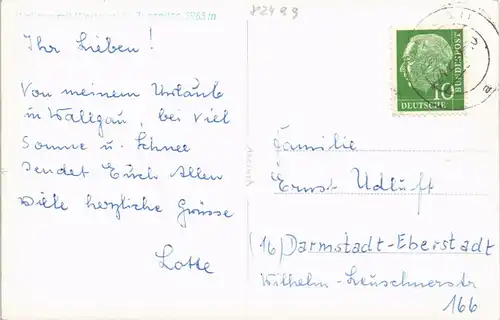 82499
Ihr Lieben!
Von meinem Urlaub
in Wallgau, bei viel
Sonne u. Schnee
sendet Euch Allen
viele herzliche Grüsse
Lotte
10
DEUTSCHE
BUNDESPOST
Familie
Ernst Udluft
(16) Darmstadt-Eberstadt
Wilhelm-Leuschnerstr
166